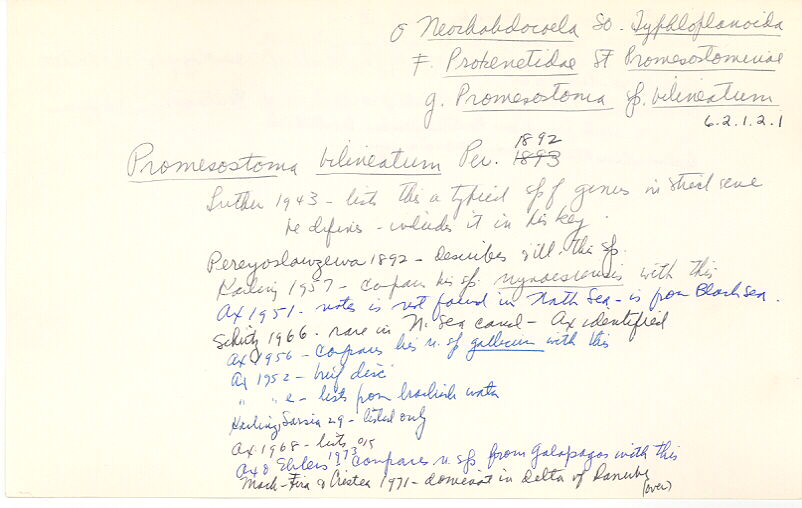 O Neorhabdocoela So. Typhloplanoida
F. Proxenetidae Sf Promesostominae
g. Promesostoma sp. bilineatum
6.2.1.2.1
Promesostoma bilineatum Per. 1892 1893
Luther 1943 - lists this a typical sp of genus in strict sense
he defines - includes it in his key.
Pereyoslawzewa 1892 - describes & ill. this sp.
Karling 1957 - compares his sp. nynaesiensis with this
Ax 1951 - notes is not found in North Sea - is from Black Sea.
Schütz 1966 - rare in N. Sea canal - Ax identified
Ax 1956 - compares his n. sp gallicum with this
Ax 1952 - brief disc
" " e - lists from brackish water
Karling, Sarsia 29 - listed only
Ax 1968 - lists
Ax & Ehlers 1973 - compares n. sp. from Galapagos with this
Mack-Fira & Cristea 1971 - dominant in delta of Danube
(over)